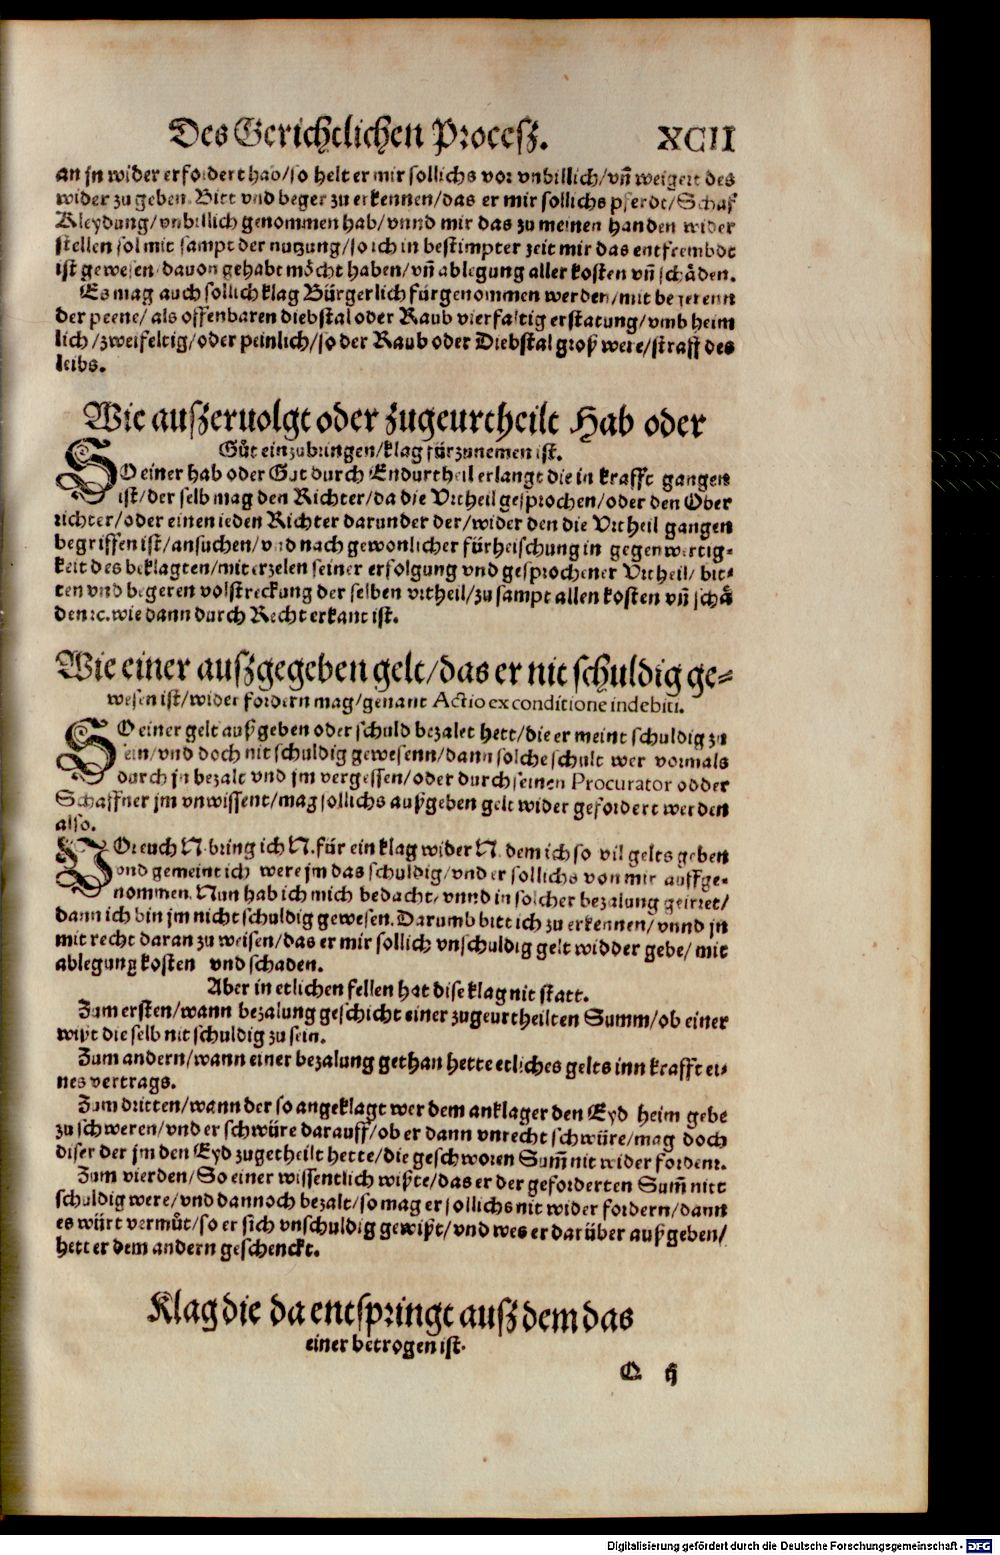 Des Gerichtlichen Procesz. XCII
an jn wider erfordert hab/so helt er mir sollichs vor vnbillich/vñ weigert des
wider zu geben. Bitt vnd beger zu erkennen/das er mir sollichs pferdt/Schaf
Kleydung/vnbillich genommen hab/vnnd mir das zu meinen handen wider
stellen sol mit sampt der nutzung/so ich in bestimpter zeit mir das entfrembdt
ist gewesen davon gehabt möcht haben/vñ ablegung aller kosten vñ schäden.
Es mag auch sollich klag Bürgerlich fürgenommen werden/mit begerenn
der peene/ als offenbaren diebstal oder Raub vierfaltig erstatung/vmb heim
lich/zweifeltig/oder peinlich/so der Raub oder Diebstal groß were/straff des
leibs.
Wie auszeruolgt oder zugeurtheilt Hab oder
Gůt einzubringen/klag fürzunemen ist.
SO einer hab oder Gůt durch Endurtheil erlangt die in krafft gangen
ist/der selb mag den Richter/da die Vrtheil gesprochen/oder den Ober
richter/oder einen ieden Richter darunder der/wider den die Vrtheil gangen
begriffen ist/ansuchen/vnd nach gewonlicher fürheischung in gegenwertig-
keit des beklagten/mit erzelen seiner erfolgung vnd gesprochener Vrtheil/ bit-
ten vnd begeren volstreckung der selben vrtheil/zu sampt allen kosten vñ schä
den ꝛc. wie dann durch Recht erkant ist.
Wie einer auszgegeben gelt/das er nit schuldig ge-
wesen ist/wider fordern mag/genant Actio ex conditione indebiti.
SO einer gelt außgeben oder schuld bezalet hett/die er meint schuldig zu
sein/vnd doch nit schuldig gewesenn/dann solche schult wer vormals
durch jn bezalt vnd jm vergessen/oder durch seinen Procurator odder
Schaffner jm vnwissent/mag sollichs außgeben gelt wider gefordert werden
also.
VOr euch N. bring ich N. für ein klag wider N. dem ich so vil gelts geben
vnd gemeint ich were jm das schuldig/vnd er sollichs von mir auffge-
nommen. Nun hab ich mich bedacht/vnnd in solcher bezalung geirret/
dann ich bin jm nicht schuldig gewesen. Darumb bitt ich zu erkennen/vnnd jn
mit recht daran zu weisen/das er mir sollich vnschuldig gelt widder gebe/ mit
ablegung kosten vnd schaden.
Aber in etlichen fellen hat dise klag nit statt.
Zum ersten/wann bezalung geschicht einer zugeurtheilten Summ/ob einer
wißt die selb nit schuldig zu sein.
Zum andern/wann einer bezalung gethan hette etliches gelts inn krafft ei-
nes vertrags.
Zum dritten/wann der so angeklagt wer dem anklager den Eyd heim gebe
zu schweren/vnd er schwüre darauff/ob er dann vnrecht schwüre/mag doch
diser der jm den Eyd zugetheilt hette/die geschworen Sum̃ nit wider fordenr.
Zum vierden/So einer wissentlich wißte/das er der geforderten Sum̃ nitt
schuldig were/vnd dannoch bezalt/so mag er sollichs nit wider fordern/dann
es würt vermůt/so er sich vnschuldig gewißt/vnd wes er darüber außgeben/
hett er dem andern geschenckt.
Klag die da entspringt ausz dem das
einer betrogen ist.
Q ij
Digitalisierung gefördert durch die Deutsche Forschungsgemeinschaft - DFG